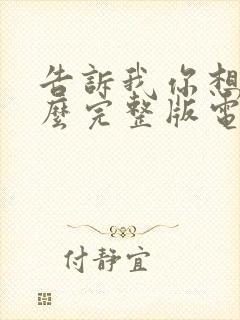 告訴我你想
麼完整版電
付靜宜